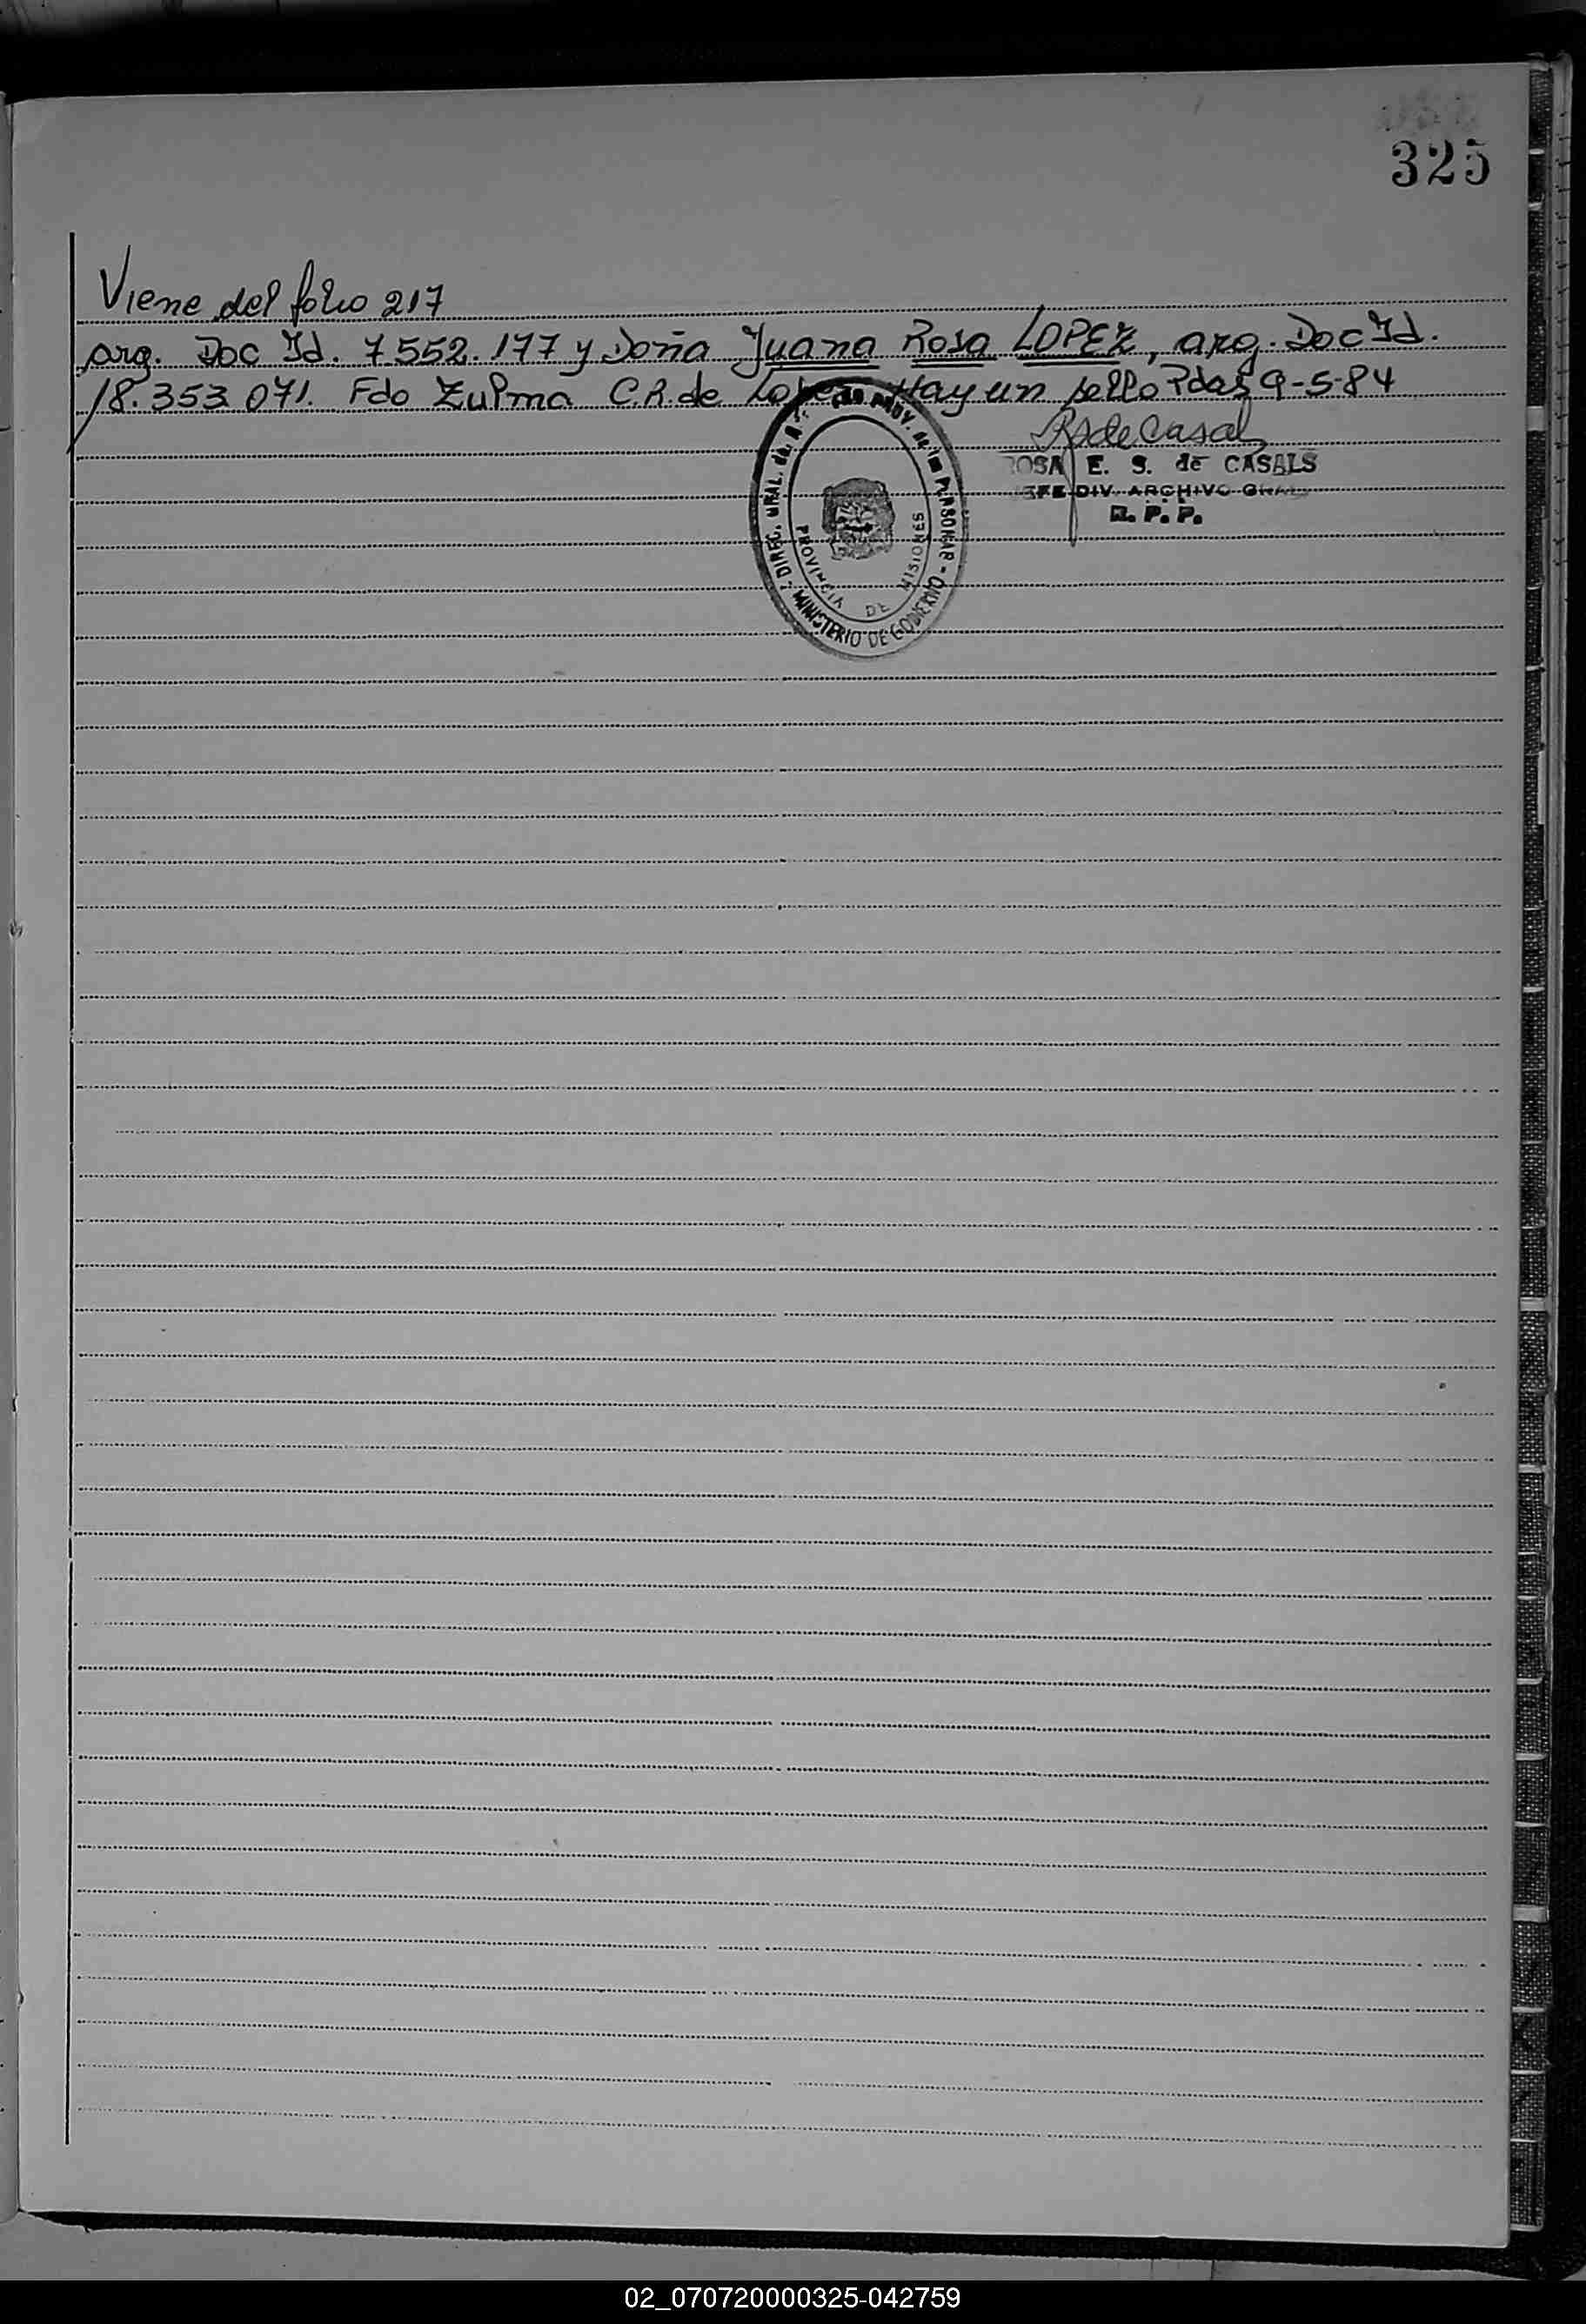 325
Viene del folio 217
arg. Doc Id. 7.552.177 y Doña Juana Rosa LOPEZ, arg. Doc Id.
18.353.071. Fdo Zulma C.R. de Lopez Hay un sello Pdas 9-5-84
ROSA E. S. de CASALS
JEFE DIV. ARCHIVO GRAL
R. P. P.
DIREC. GRAL. de
PROV. de las PERSONAS - MINISTERIO DE GOBIERNO
PROVINCIA DE MISIONES
02_070720000325-042759